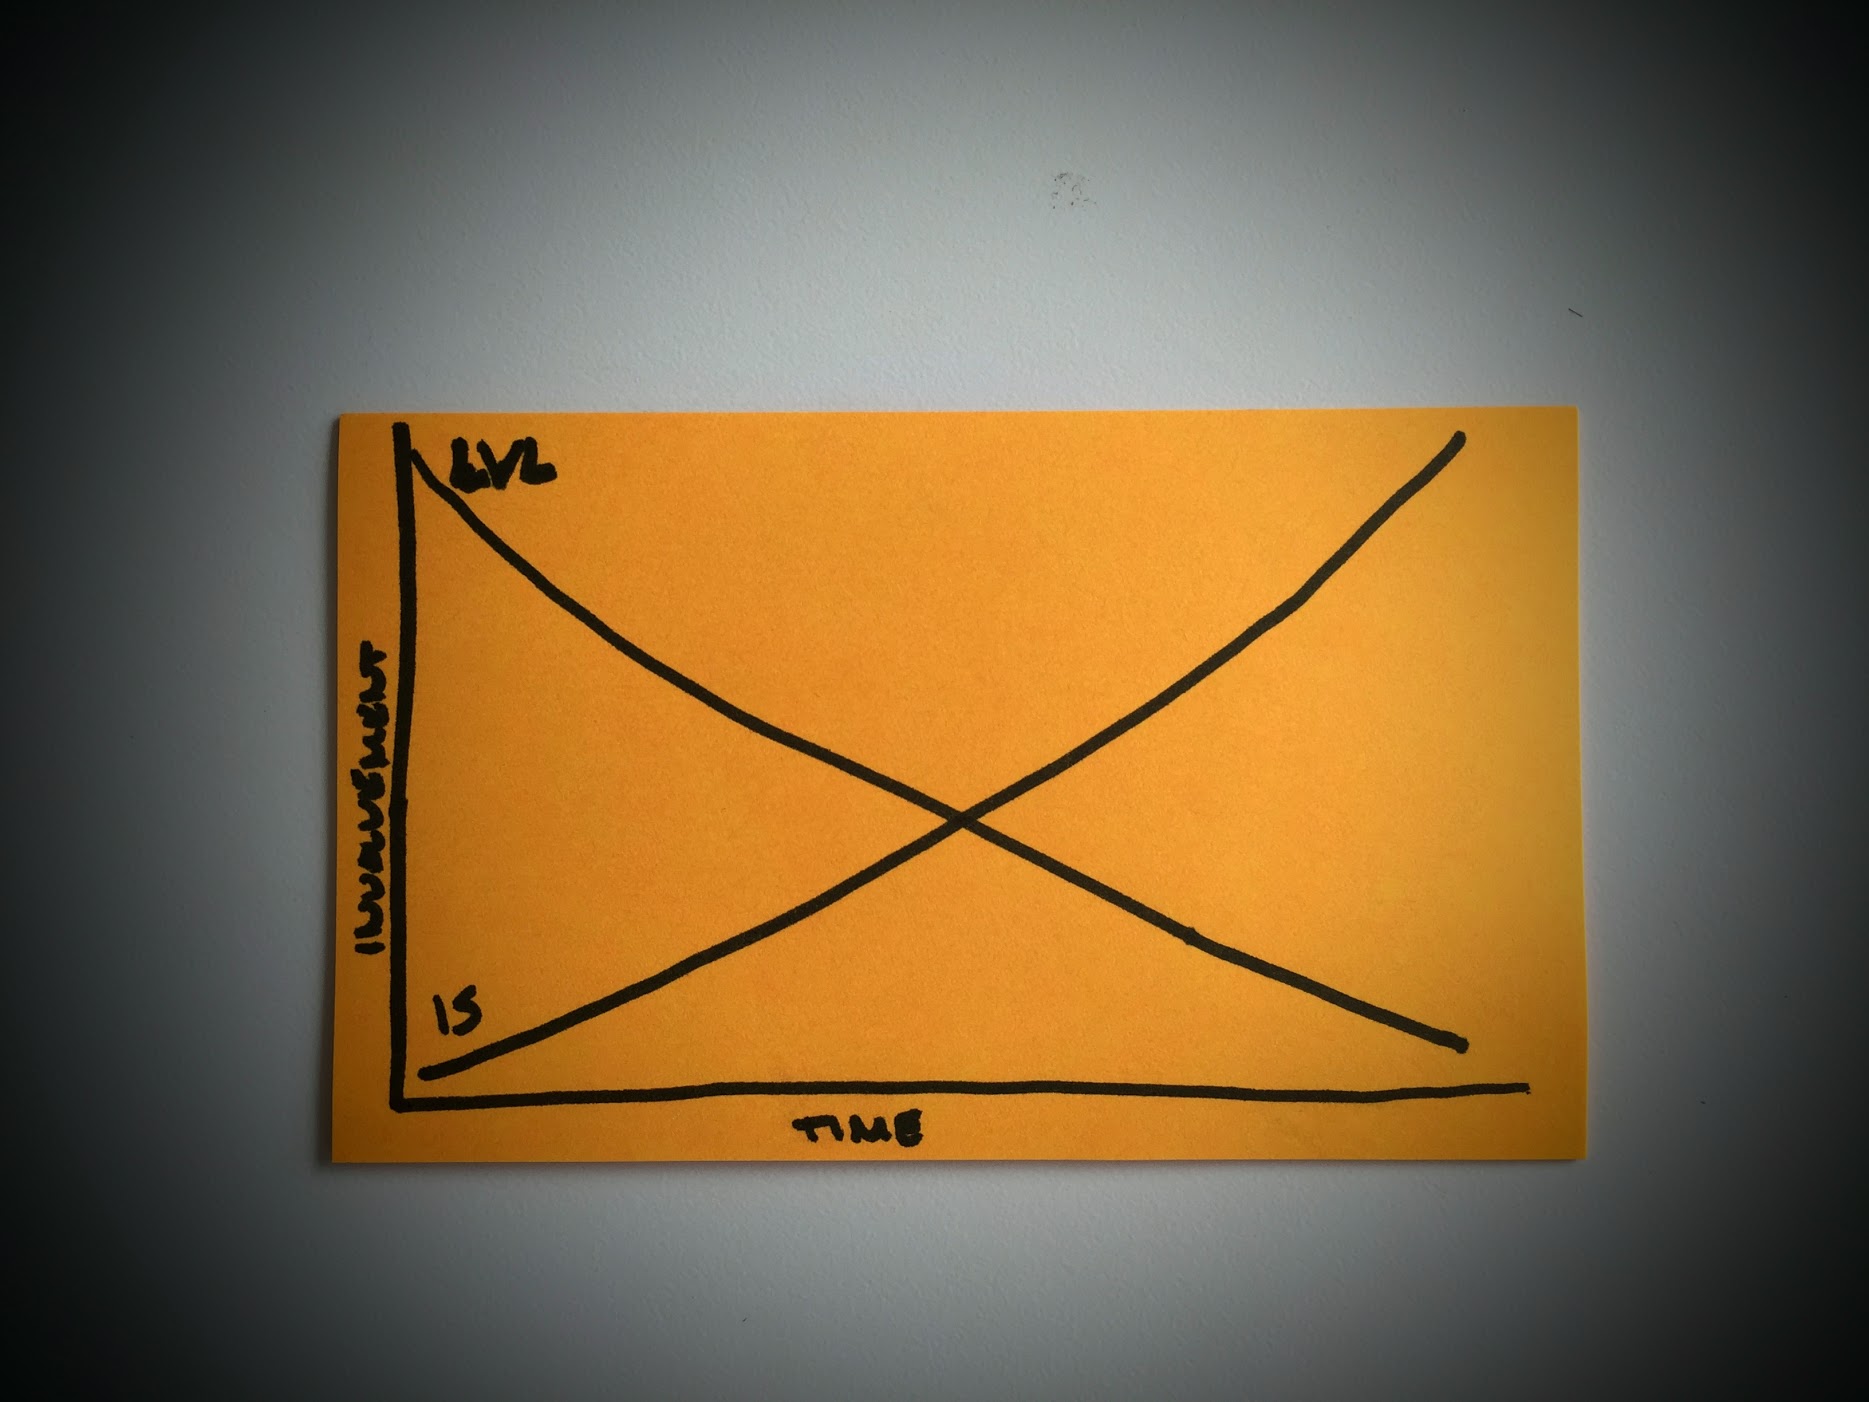 INVOLVEMENT
IS
TIME